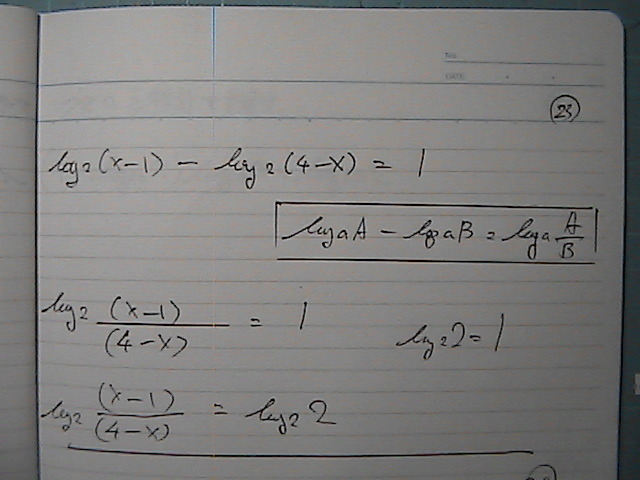 No.
DATE
23
log₂(x-1) - log₂(4-x) = 1
logₐA - logₐB = logₐ A/B
log₂ (x-1)/(4-x) = 1
log₂2=1
log₂ (x-1)/(4-x) = log₂2